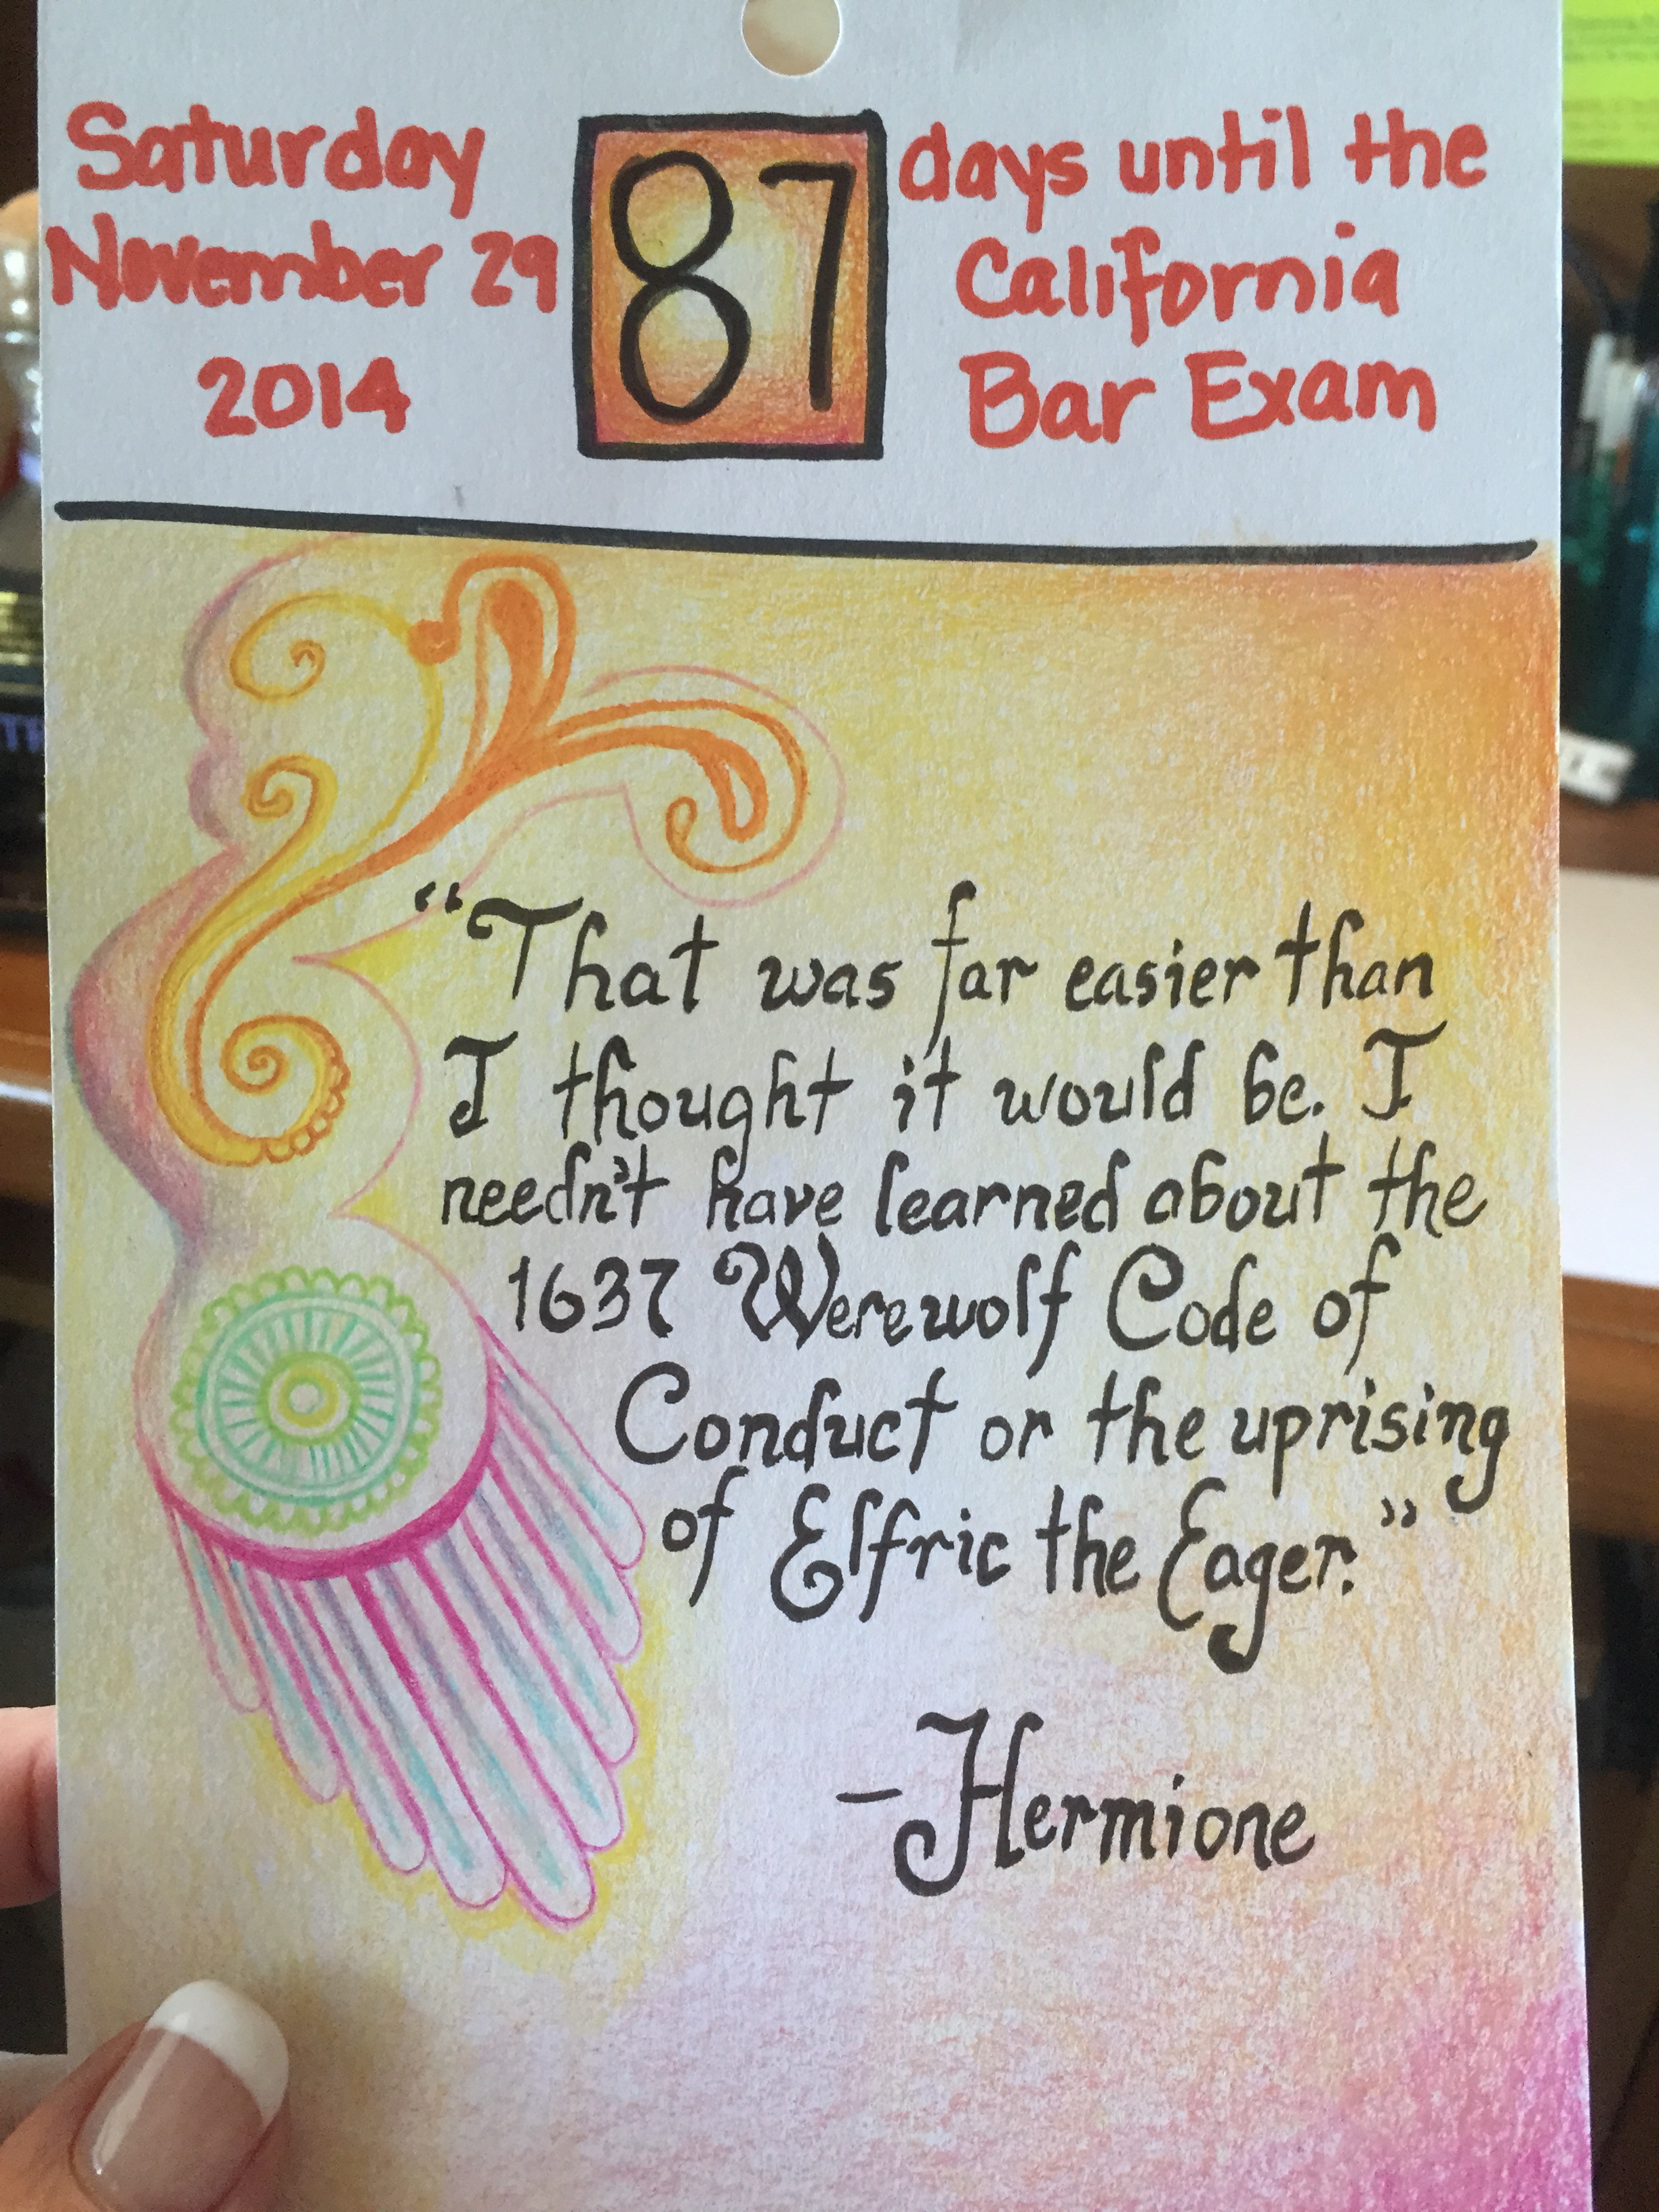 Saturday
November 29
2014
87
days until the
California
Bar Exam
"That was far easier than
I thought it would be. I
needn't have learned about the
1637 Werewolf Code of
Conduct or the uprising
of Elfric the Eager."
-Hermione